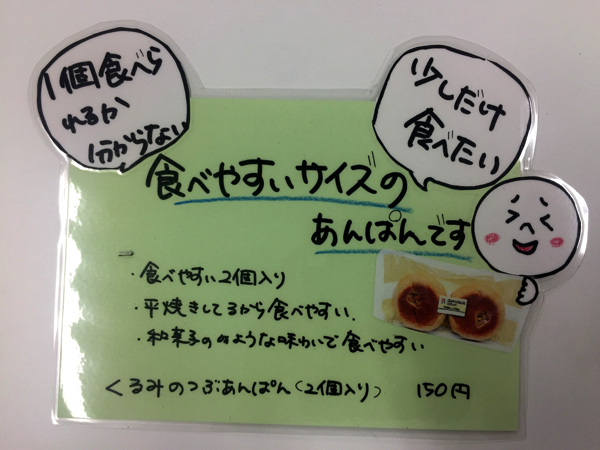 1個食べら
れるか
分からない
少しだけ
食べたい
食べやすいサイズの
あんぱんです
・食べやすい2個入り
・平焼きしてるから食べやすい.
・和菓子ののような味わいで食べやすい
くるみのつぶあんぱん(2個入り) 150円